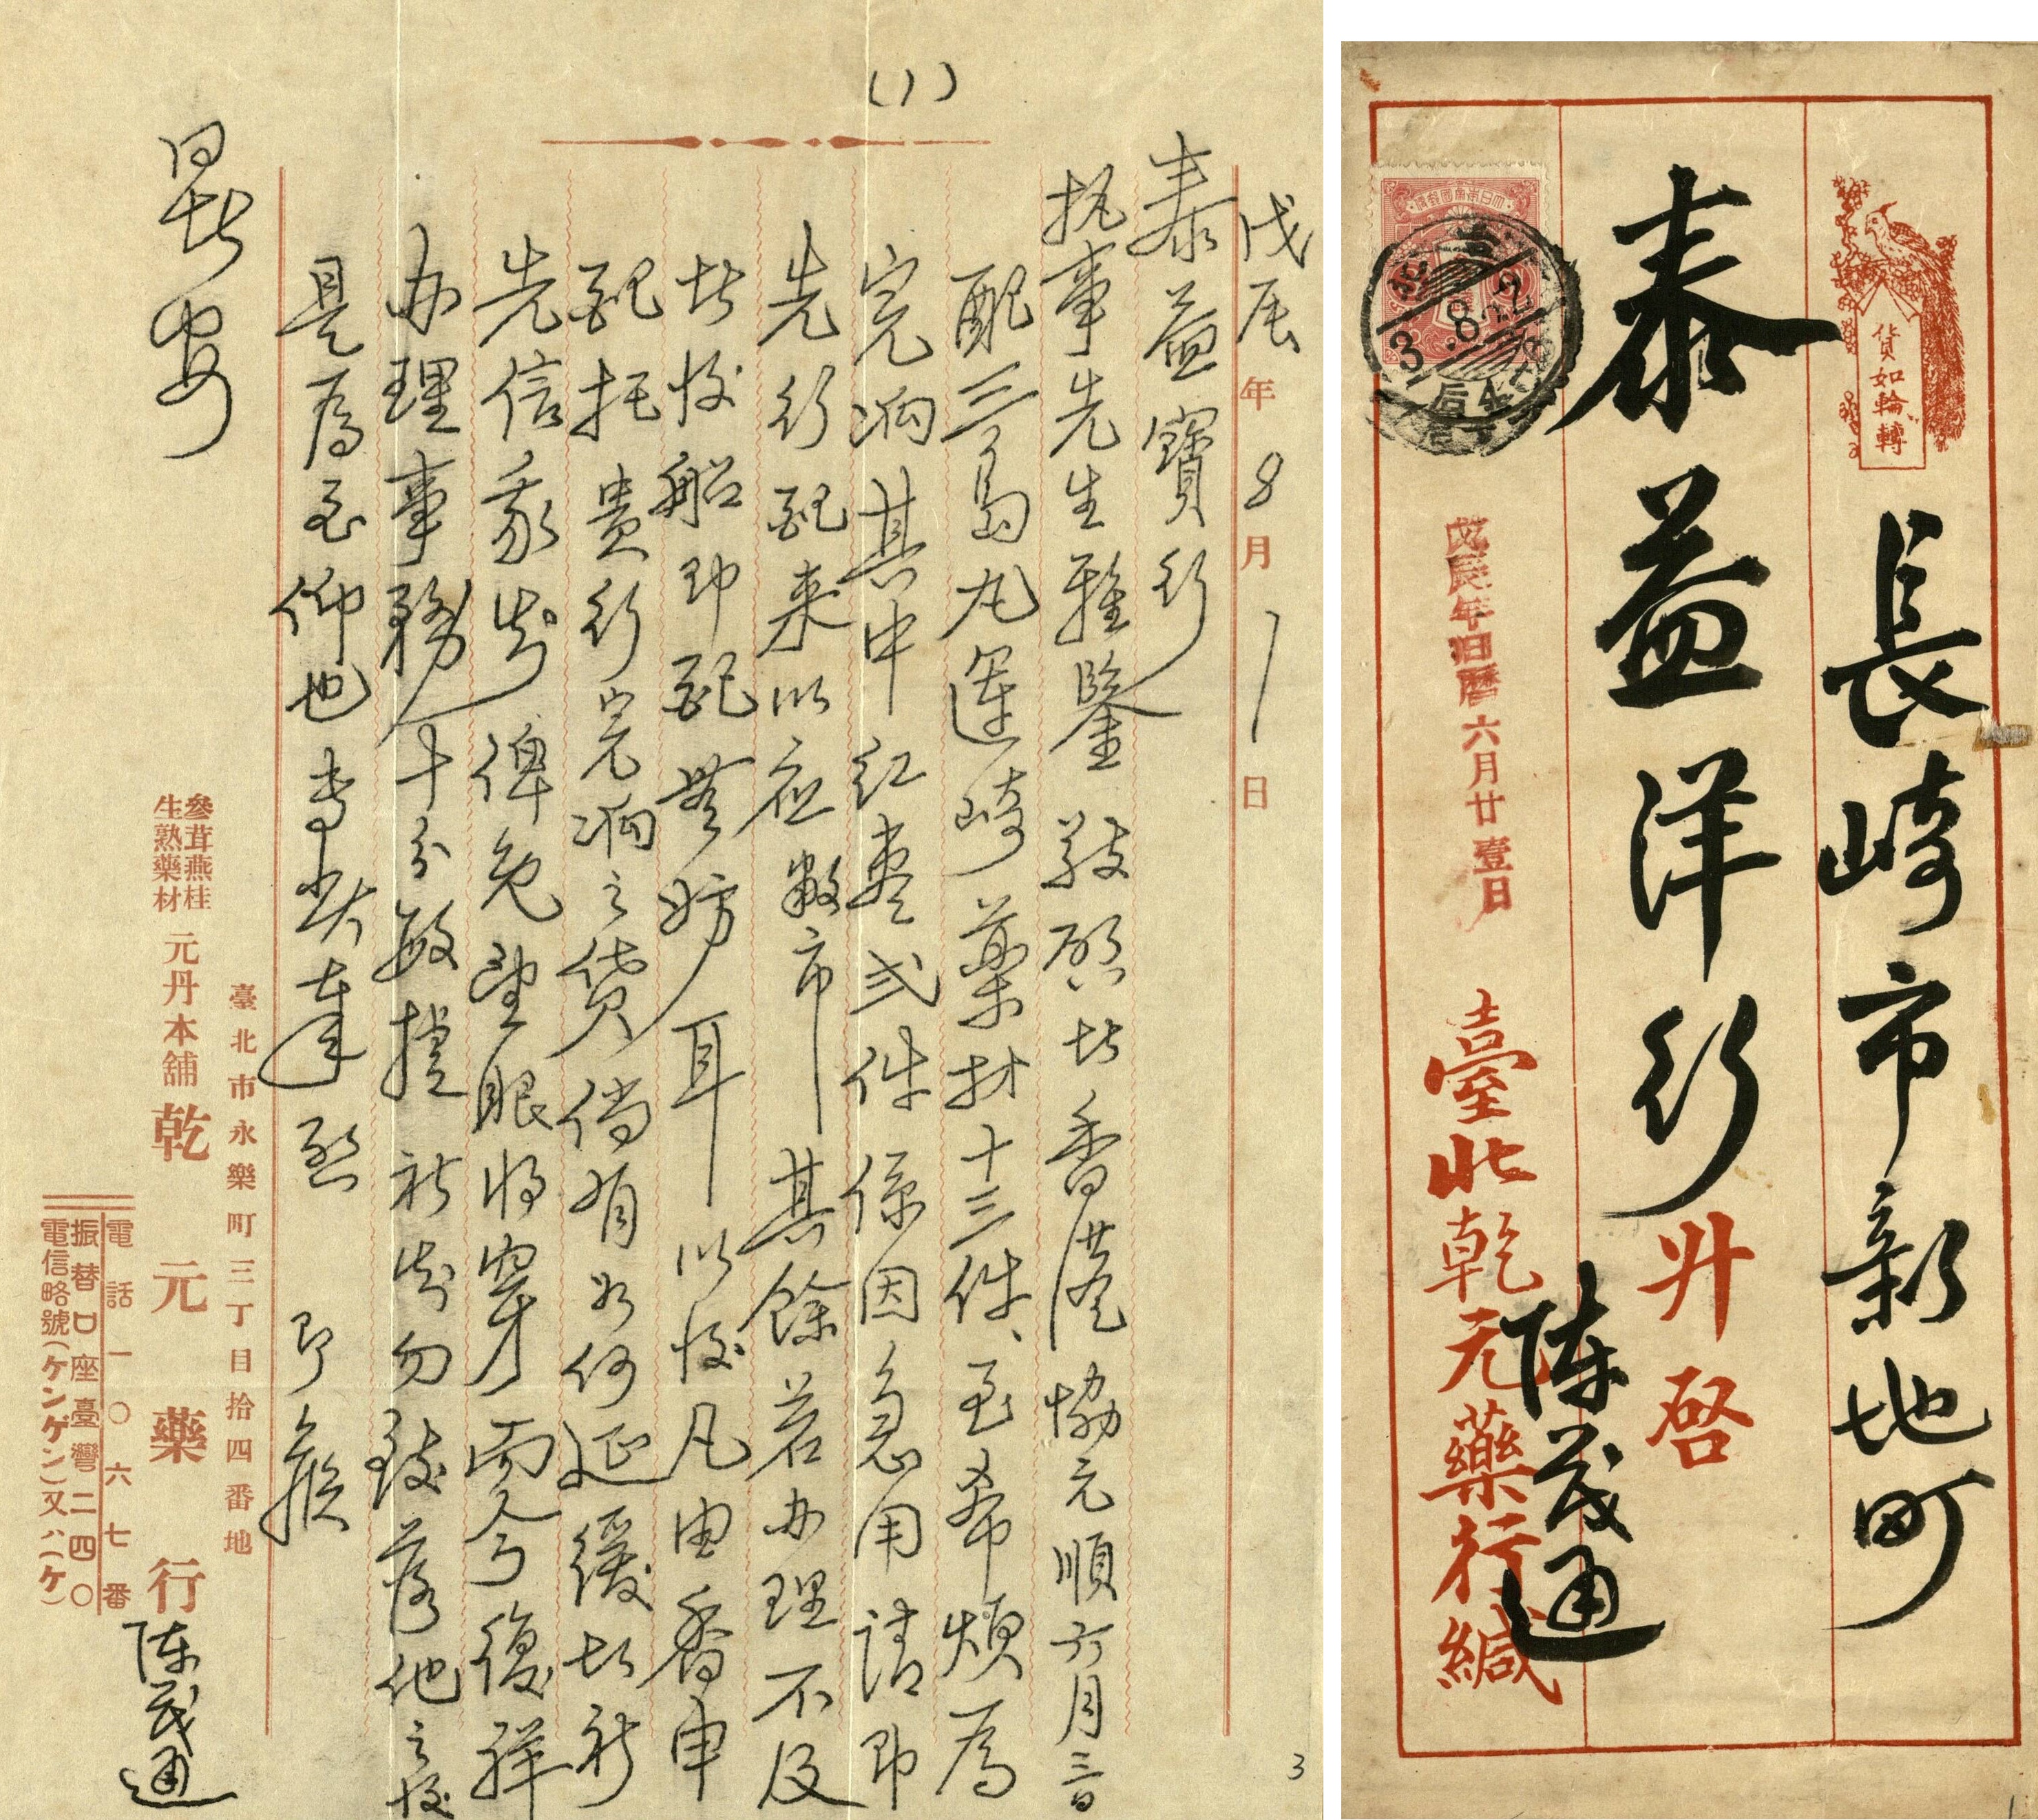 (1)
戊辰年8月1日
泰益寶行
执事先生雅鑒敬啓者香港協元順六月三日
配三島丸運崎藥材十三件、至希煩為
完餉其中紅棗弍件係因急用請即
先行配来以应敝市其餘若办理不及
於後船即配無妨耳以後凡由香申
配托貴行完餉之貨倘有如何延緩於祈
先信示知俾免望眼將穿而今復祥
办理事務十分敏捷祈知勿致落他之後
是為至仰也専此奉啓 即候
暑安
臺北市永樂町三丁目拾四番地
參茸燕桂
生熟藥材
元丹本舖 乾元藥行
陳茂通
電話一〇六七番
振替口座臺灣二四〇
電信略號(ケンゲン)又ハ(ケ)
3
貨如輪轉
長崎市新地町
泰益洋行 升啓
陳茂通
大日本帝國郵便
3.8.2
戊辰年旧曆六月廿壹日
臺北乾元藥行緘
1